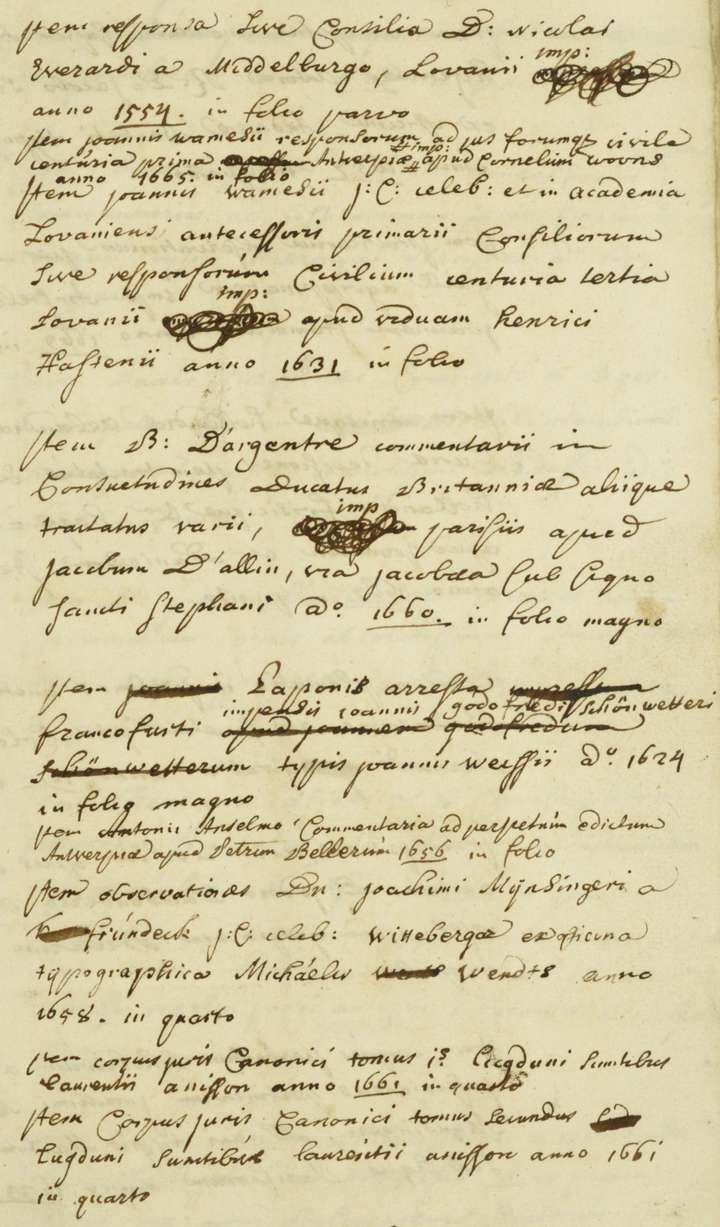 Item responsa Sive Consilia D: nicolai
Everardi a Middelburgo, Lovanii imp:
anno 1554. in folio parvo
Item joannis wamesii responsorum ad jus forumqz civile
centuria prima Antverpiæ imp: apud Cornelium woons
anno 1665. in folio
Item joannis wamesii j: C: celeb: et in academia
Lovaniensi antecessoris primarii Consiliorum
Sive responsorúm Civilium centuria tertia
Lovanii imp: apud viduam henrici
Hastenii anno 1631 in folio
Item B: D'argentre commentarii in
Consuetudines Ducatus Britanniæ aliique
tractatus varii, imp parisiis apud
Jacobum D'allin, via jacobæa Sub Cigno
Sancti Stephani Aº. 1660. in folio magno
Item Paponis arresta
francofurti impensis joannis godofredi Schönwetteri
typis joannis weissii Aº. 1624
in folio magno
Item Antonii Anselmo Commentaria ad perpetuúm edictum
Antwerpiæ apud Petrum Bellerúm 1656 in folio
Item observationes Dn: joachimi Mÿnsingeri a
frúndeck j: C: celeb: Wittebergæ ex officina
typographica Michaelis Wendts anno
1658. in quarto
Item corpus juris Canonici tomus 1s Lugduni Sumtibus
Laurentii anisson anno 1661 in quarto
Item Corpus juris Canonici tomus Secundus
Lugduni Sumtibús laurentii anisson anno 1661
in quarto